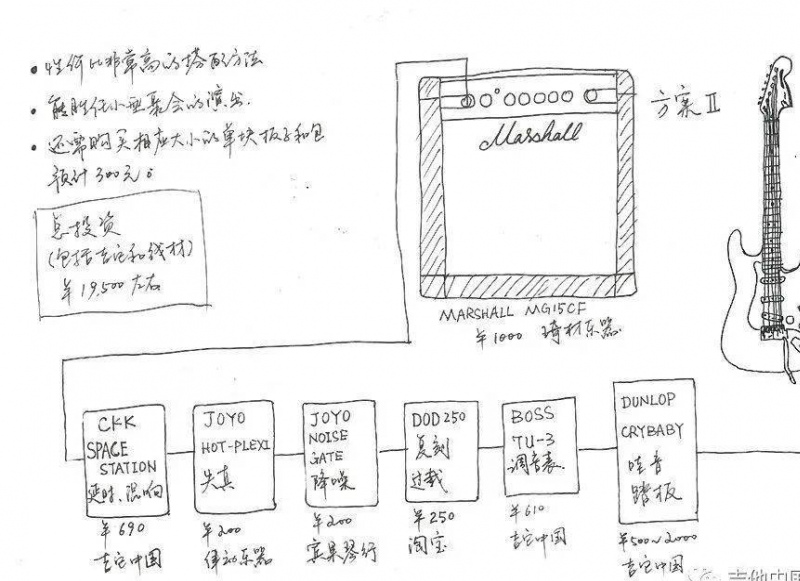 • 性价比非常高的搭配方法
• 能胜任小型聚会的演出.
• 还需购买相应大小的单块板子和包
预计300元。
总投资
(包括吉它和线材)
¥19,500左右
Marshall
方案II
MARSHALL MG15CF
¥1000 琦材乐器
CKK
SPACE
STATION
延时、混响
¥690
吉它中国
JOYO
HOT-PLEXI
失真
¥200
伟动乐器
JOYO
NOISE
GATE
降噪
¥200
宾果琴行
DOD250
复刻
过载
¥250
淘宝
BOSS
TU-3
调音表
¥610
吉它中国
DUNLOP
CRYBABY
哇音
踏板
¥500~2000
吉它中国